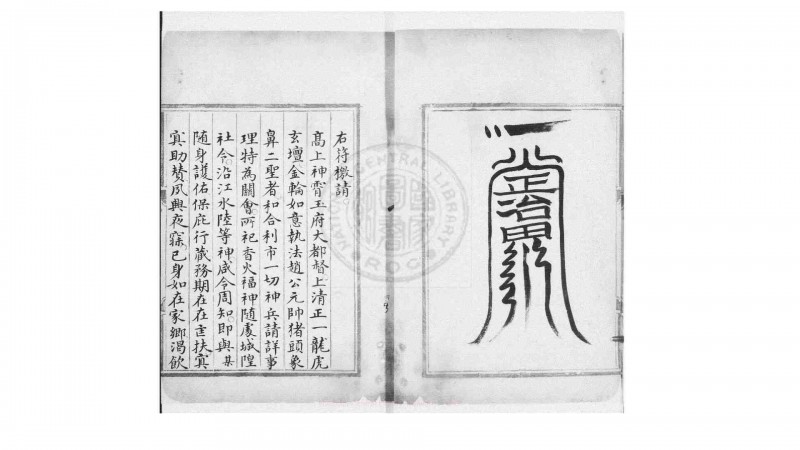 右符檄請
高上神霄玉府大都督上清正一龍虎
玄壇金輪如意執法趙公元帥猪頭象
鼻二聖者和合利市一切神兵請詳事
理特為關會所祀香火福神随處城隍
社令沿江水陸等神咸令周知即與某
随身護佑保庇行藏務期在在扶寘
寘助賛夙興夜寐已身如在家鄉渴飲
NATIONAL CENTRAL LIBRARY
ROC